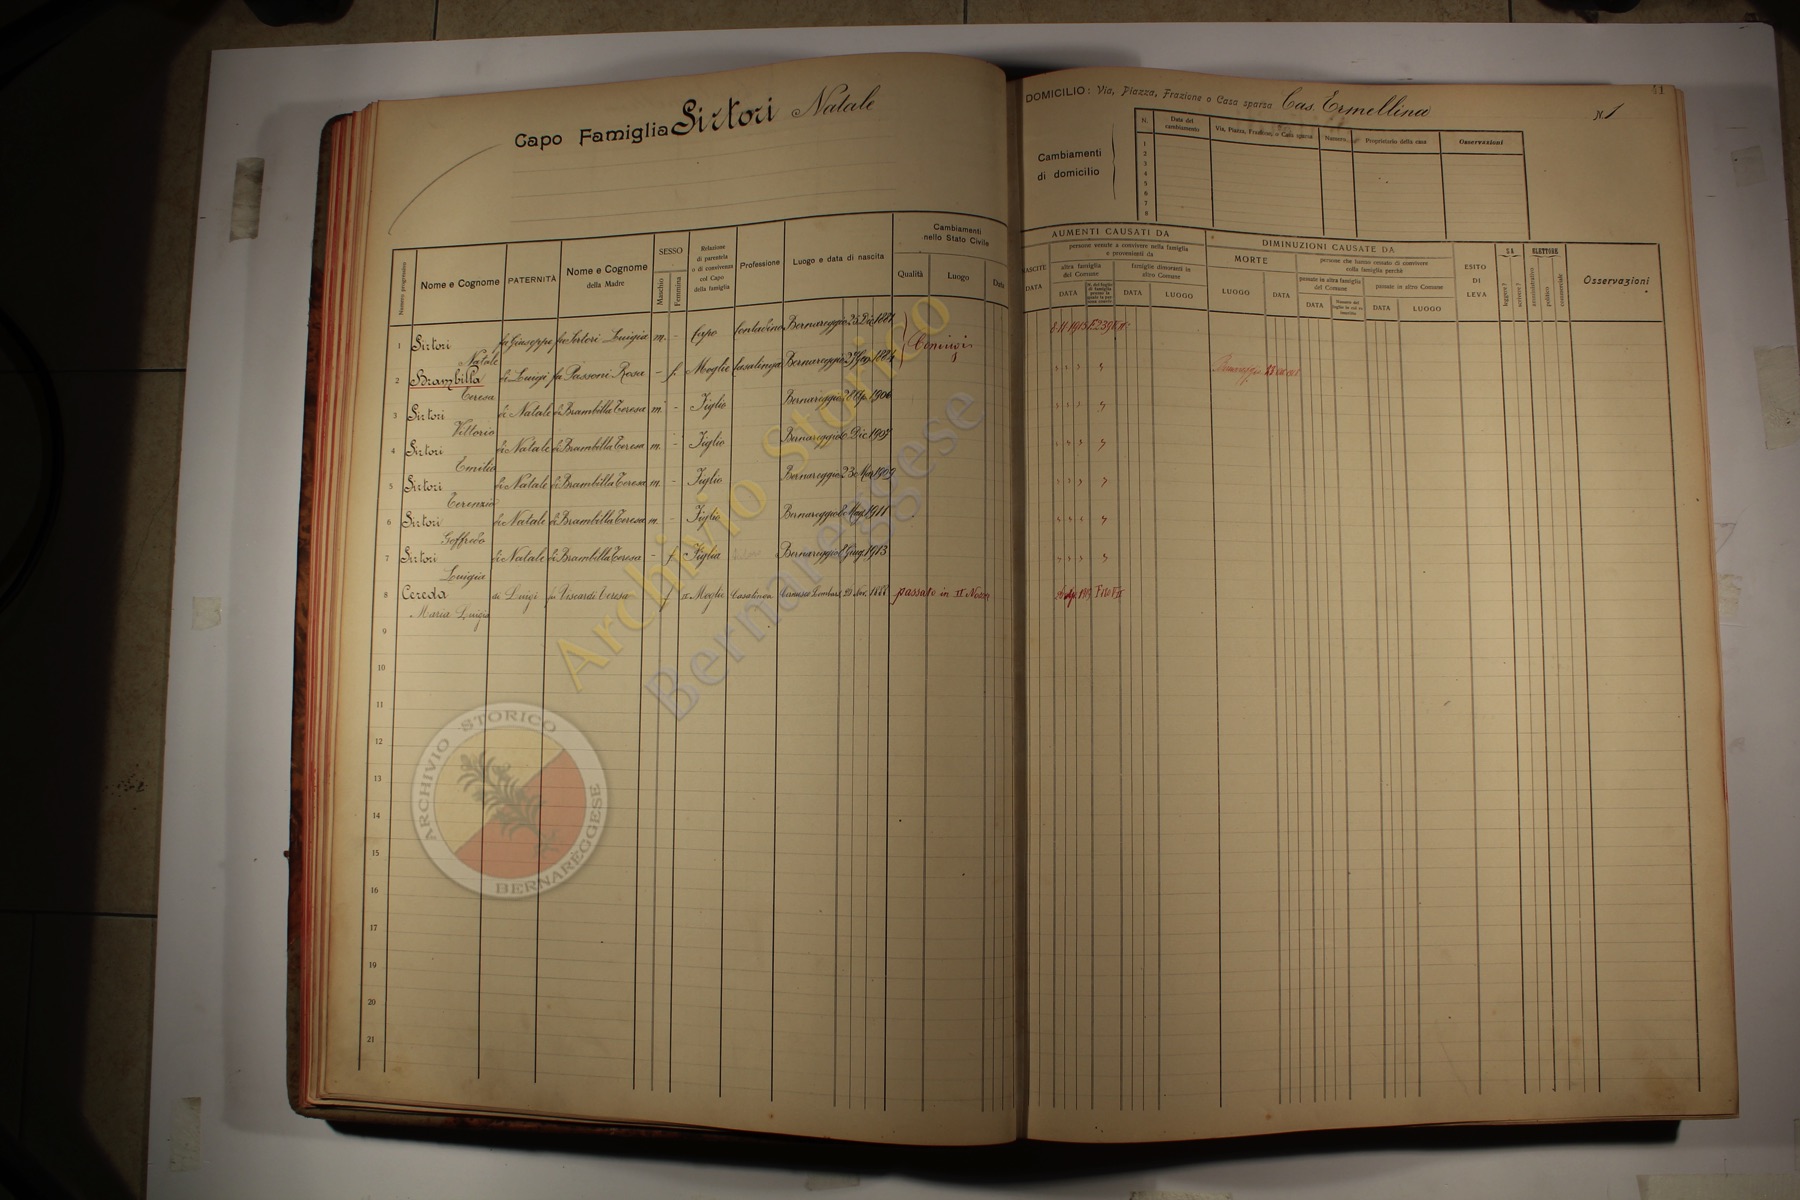 Capo Famiglia Sirtori Natale
Numero progressivo
Nome e Cognome
PATERNITÀ
Nome e Cognome
della Madre
SESSO
Maschio
Femmina
Relazione
di parentela
o di convivenza
col Capo
della famiglia
Professione
Luogo e data di nascita
Cambiamenti
nello Stato Civile
Qualità
Luogo
Data
1 Sirtori fu Giuseppe fu Sirtori Luigia m. - Capo Contadino Bernareggio 25 Dic. 1881 Coniugi
Natale
2 Brambilla di Luigi fu Passoni Rosa - f. Moglie Casalinga Bernareggio 27 1884
Teresa
3 Sirtori di Natale di Brambilla Teresa m. - Figlio Bernareggio 1906
Vittorio
4 Sirtori di Natale di Brambilla Teresa m. - Figlio Bernareggio Dic. 1907
Emilio
5 Sirtori di Natale di Brambilla Teresa m. - Figlio Bernareggio 23 Mag. 1909
Terenzio
6 Sirtori di Natale di Brambilla Teresa m. - Figlio Bernareggio 1911
Goffredo
7 Sirtori di Natale di Brambilla Teresa - f. Figlia Bernareggio Giug. 1913
Luigia
8 Cereda di Luigi fu Viscardi Teresa f IIª Moglie Casalinga Carnusco Lombard. Nov. 1888 passato in II Nozze
Maria Luigia
9
10
11
12
13
14
15
16
17
18
19
20
21
41
DOMICILIO: Via, Piazza, Frazione o Casa sparsa Cas. Ermellina N. 1
Cambiamenti
di domicilio
N.
Data del
cambiamento
Via, Piazza, Frazione, o Casa sparsa
Numero
Proprietario della casa
Osservazioni
1
2
3
4
5
6
7
8
AUMENTI CAUSATI DA
NASCITE
DATA
persone venute a convivere nella famiglia
e provenienti da
altra famiglia
del Comune
DATA
famiglie dimoranti in
altro Comune
DATA
LUOGO
DIMINUZIONI CAUSATE DA
MORTE
LUOGO
DATA
persone che hanno cessato di convivere
colla famiglia perchè
passate in altra famiglia
del Comune
DATA
passate in altro Comune
DATA
LUOGO
ESITO
DI
LEVA
SA
leggere?
scrivere?
ELETTORE
amministrativo
politico
commerciale
Osservazioni
8 11 1913 F. 239
ARCHIVIO STORICO
BERNAREGGESE
Archivio Storico
Bernareggese